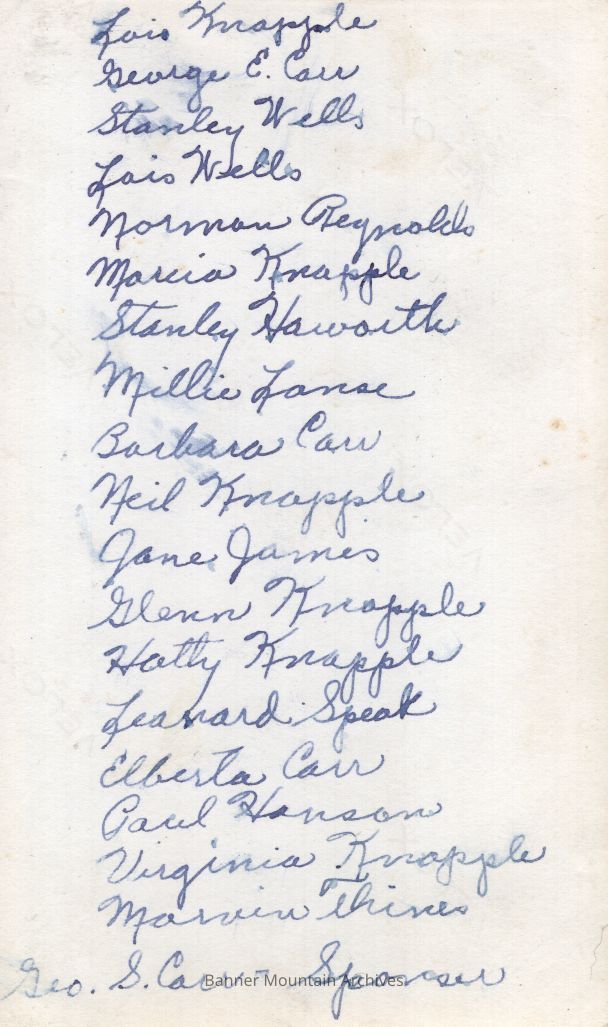 Lois Knapple
George E. Carr
Stanley Wells
Lois Wells
Norman Reynolds
Marcia Knapple
Stanley Haworth
Millie Lanse
Barbara Carr
Neil Knapple
Jane James
Glenn Knapple
Hatty Knapple
Leanard Speak
Elberta Carr
Paul Hanson
Virginia Knapple
Marvin Thines
Geo. S. Carr - Sponser
Banner Mountain Archives